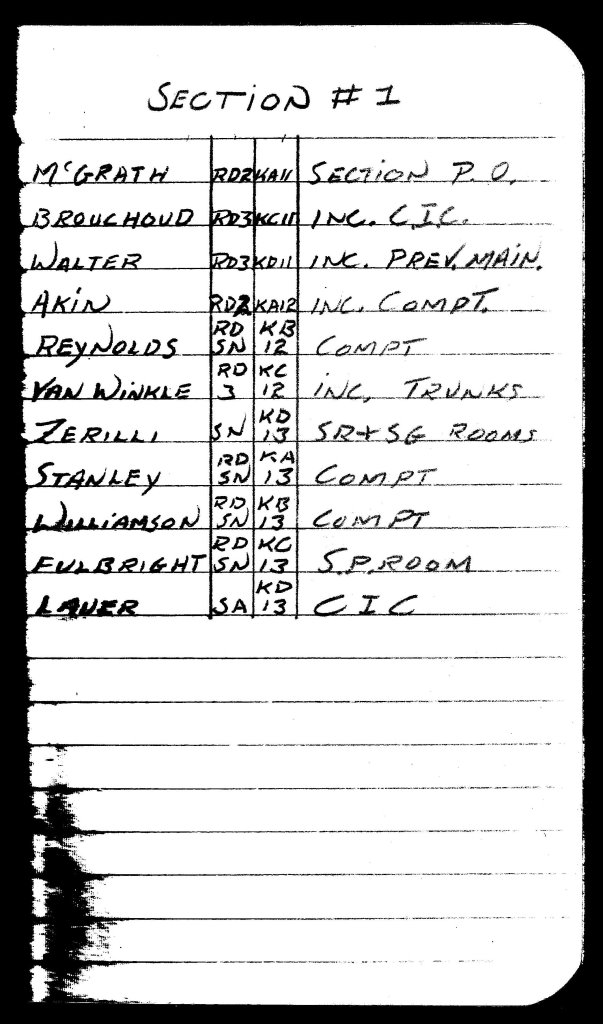 SECTION # 1
McGRATH RD2 KA11 SECTION P.O.
BROUCHOUD RD3 KC11 INC. CIC.
WALTER RD3 KD11 INC. PREV. MAIN.
AKIN RD2 KA12 INC. COMPT.
REYNOLDS RD SN KB 12 COMPT
VAN WINKLE RD 3 KC 12 INC. TRUNKS
ZERILLI SN KD 13 SR+SG ROOMS
STANLEY RD SN KA 13 COMPT
WILLIAMSON RD SN KB 13 COMPT
FULBRIGHT RD SN KC 13 S.P. ROOM
LAUER SA KD 13 CIC